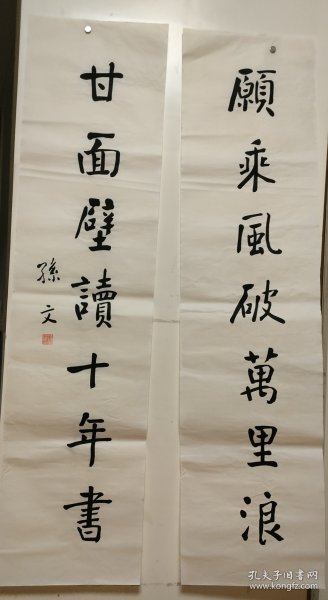 願乘風破萬里浪
甘面壁讀十年書
孫文
孔夫子旧书网
www.kongfz.com